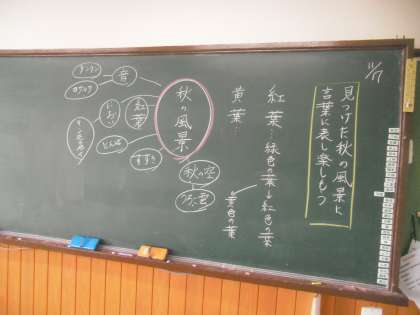 11/17
見つけた秋の風景を
言葉に表し楽しもう
紅葉…緑色の葉→紅色の葉
黄色の葉
黄葉…
秋の風景
秋の空
うろこ雲
音
紅葉
におい
とんぼ
すすき